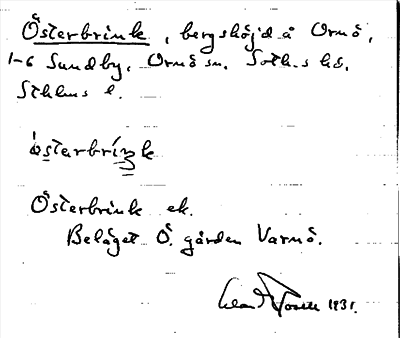 Österbrink, bergshöjd å Ornö,
1-6 Sundby, Ornö sn. Soth.s hd.
Sthlms l.
österbriŋk
Österbrink ek.
Beläget Ö. gården Varnö.
1931.